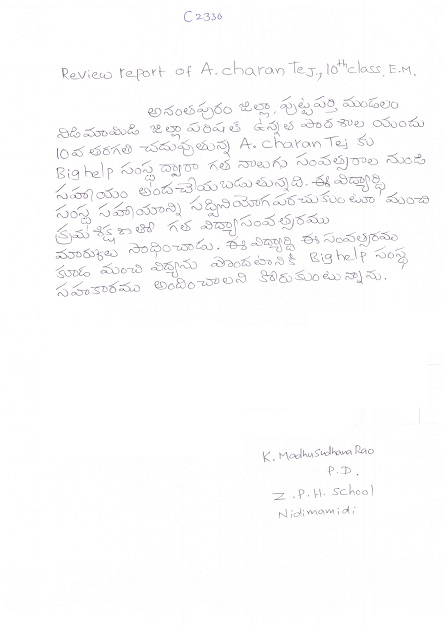 C2330
Review report of A. charan Tej, 10th class, E.M.
అనంతపురం జిల్లా, పుట్టపర్తి మండలం
నిడిమామిడి జిల్లా పరిషత ఉన్నత పాఠశాల యందు
10వ తరగతి చదువుతున్న A. charan Tej కు
Big help సంస్థ ద్వారా గత నాలుగు సంవత్సరాల నుండి
సహాయం అందచేయబడుతున్నది. ఈ విద్యార్థి
సంస్థ సహాయాన్ని సద్వినియోగపరచుకుంటూ మంచి
క్రమశిక్షణతో గత విద్యాసంవత్సరము
మార్కులు సాధించాడు. ఈ విద్యార్థి ఈ సంవత్సరము
కూడ మంచి విద్యను పొందటానికి Big help సంస్థ
సహకారము అందించాలని కోరుకుంటున్నాను.
K. Madhusudhana Rao
P.D.
Z.P.H. School
Nidimamidi